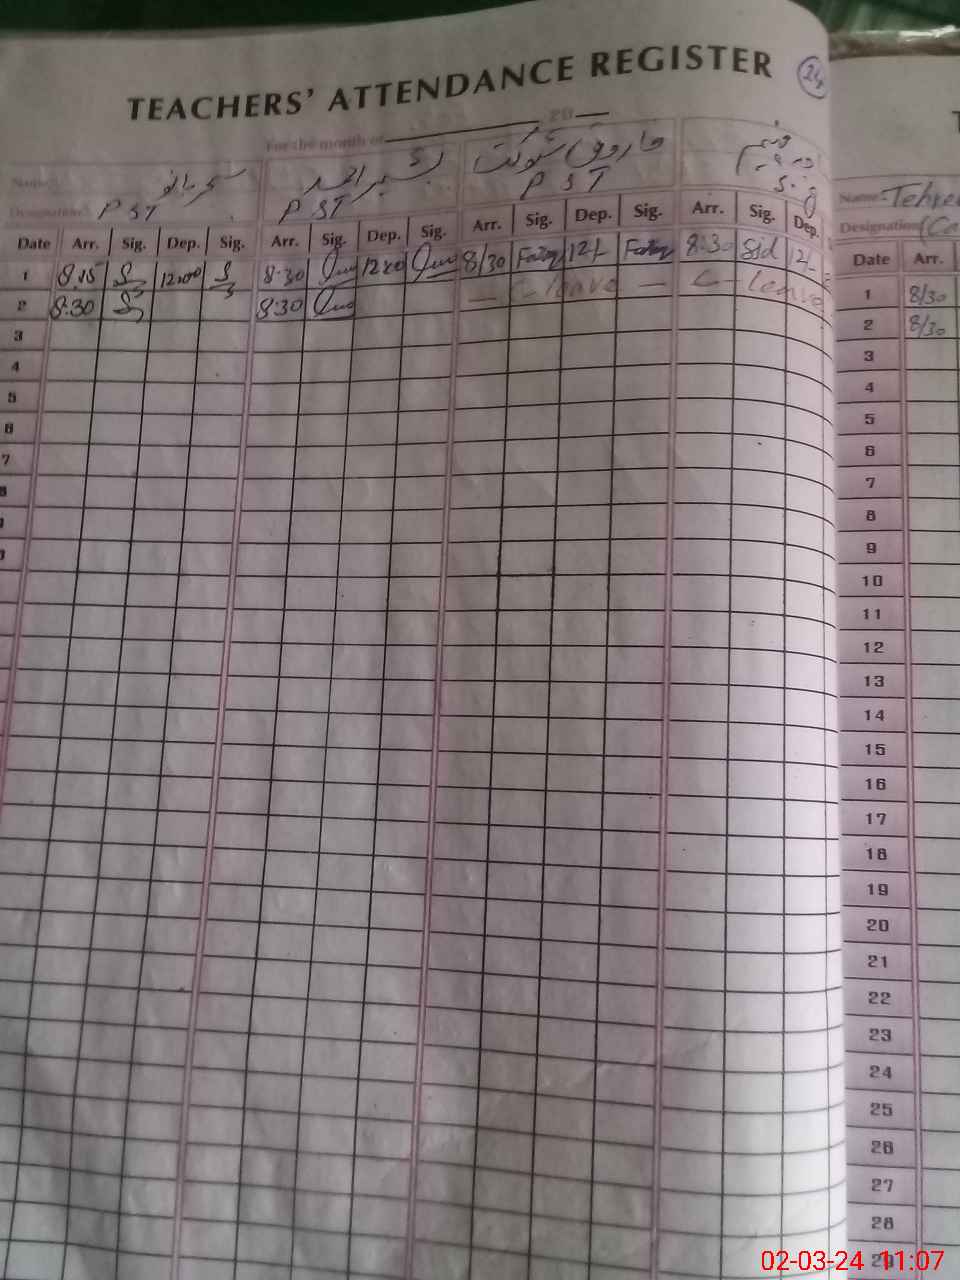 TEACHERS' ATTENDANCE REGISTER 24
For the month of 20
Name شبیر احمد فاروق شوکت
Designation PST PST PST
Date Arr. Sig. Dep. Sig. Arr. Sig. Dep. Sig. Arr. Sig. Dep. Sig. Arr. Sig. Dep.
1 8:15 12:00 8:30 12:00 8/30 12/- 8:30 Sid 12/-
2 8:30 8:30 — C-leave — C-leave
3
4
5
6
7
8
Name: Tehre
Designation (Co
Date Arr.
1 8/30
2 8/30
3
4
5
6
7
8
9
10
11
12
13
14
15
16
17
18
19
20
21
22
23
24
25
26
27
28
29
02-03-24 11:07